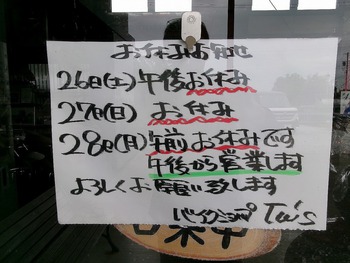 お休みお知らせ
26日(土)午後お休み
27日(日) お休み
28日(月)午前お休みです
午後から営業します
よろしくお願い致します
バイクショップ Ta's